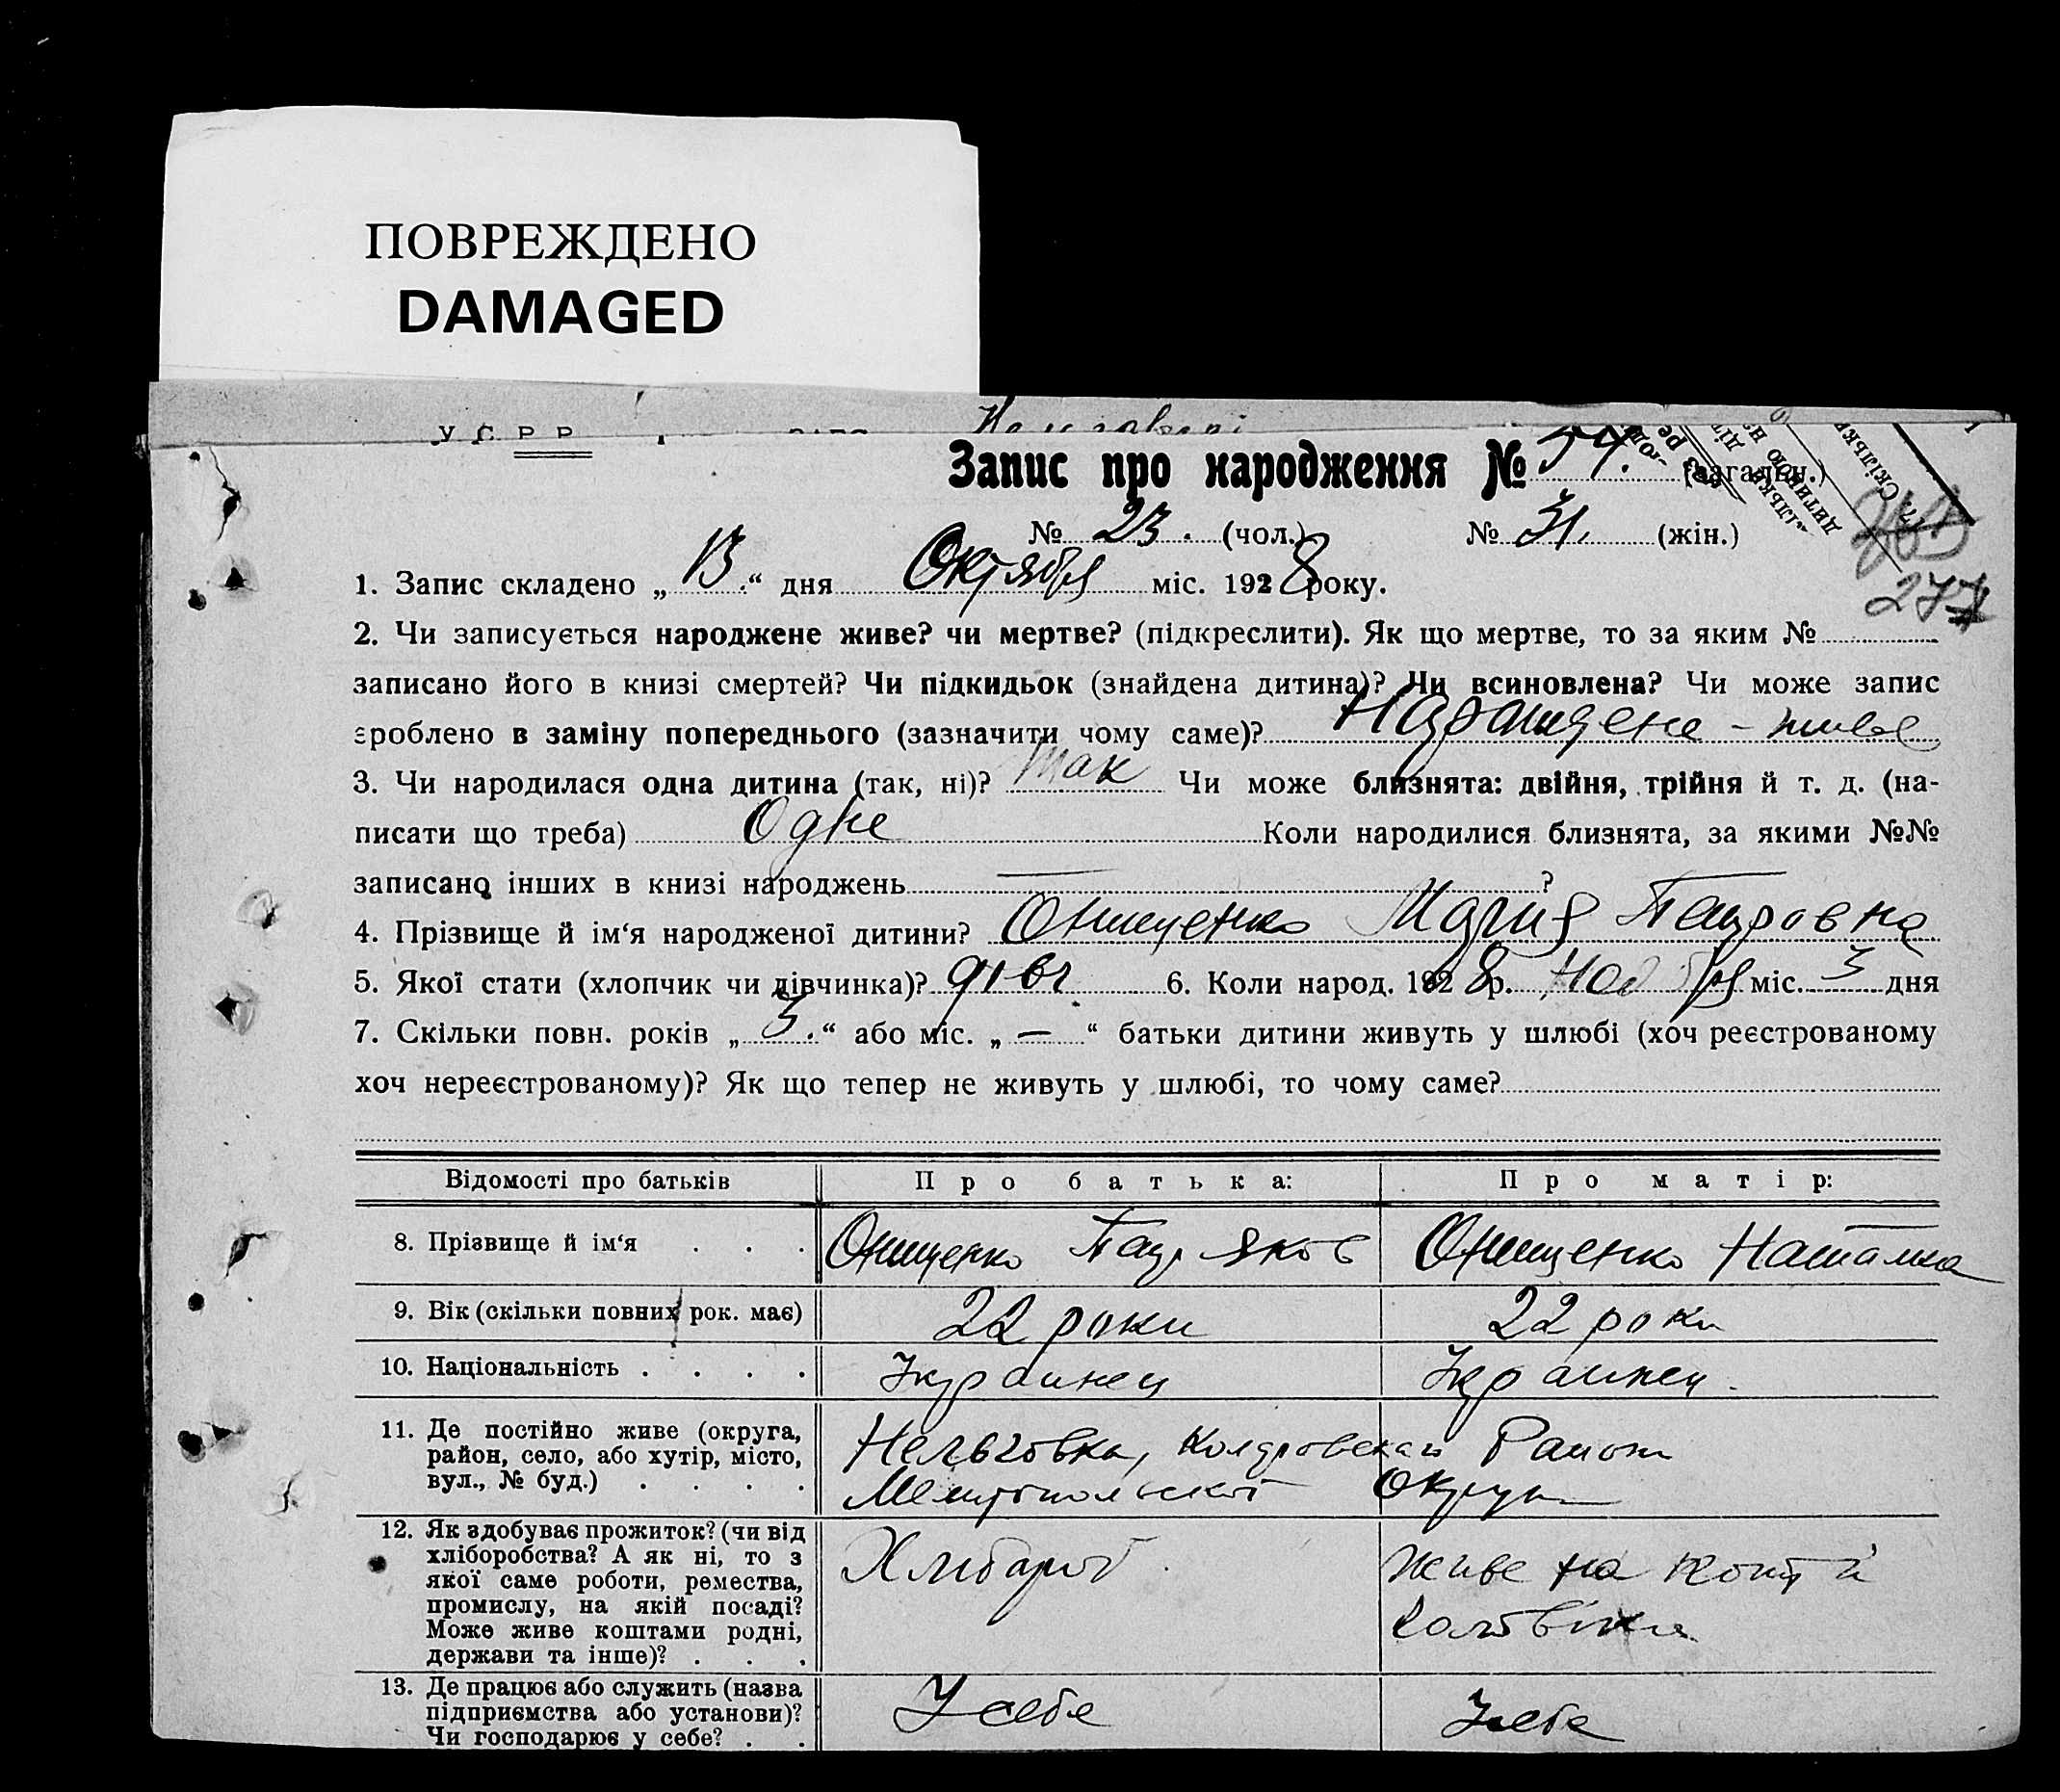 ПОВРЕЖДЕНО
DAMAGED
У С Р Р
Запис про народження № 54. (загальн.)
№ 23. (чол.) № 31. (жін.)
1. Запис складено „13.“ дня Октября міс. 1928 року.
2. Чи записується народжене живе? чи мертве? (підкреслити). Як що мертве, то за яким №
записано його в книзі смертей? Чи підкидьок (знайдена дитина)? Чи всиновлена? Чи може запис
зроблено в заміну попереднього (зазначити чому саме)? - живе
3. Чи народилася одна дитина (так, ні)? так Чи може близнята: двійня, трійня й т. д. (на-
писати що треба) Одне Коли народилися близнята, за якими №№
записано інших в книзі народжень — ?
4. Прізвище й ім‘я народженої дитини? Онищенко Мария
5. Якої стати (хлопчик чи дівчинка)? дівч 6. Коли народ. 1928 р. міс. 3 дня
7. Скільки повн. років „3.“ або міс. „—“ батьки дитини живуть у шлюбі (хоч реєстрованому
хоч нереєстрованому)? Як що тепер не живуть у шлюбі, то чому саме?
Відомості про батьків Про батька: Про матір:
8. Прізвище й ім‘я . . . Онищенко Яков Онищенко Наталка
9. Вік (скільки повних рок. має) 22 роки 22 роки
10. Національність . . . . Украинец Украинец.
11. Де постійно живе (округа,
район, село, або хутір, місто,
вул., № буд.) . . . .
Нельговка, Район
Мелитопольскої Округи
12. Як здобуває прожиток? (чи від
хліборобства? А як ні, то з
якої саме роботи, ремества,
промислу, на якій посаді?
Може живе коштами родні,
держави та інше)? . . .
Хлибороб
живе на кошти
чоловіка
13. Де працює або служить (назва
підприємства або установи)?
Чи господарює у себе? . .
У себе У себе
277